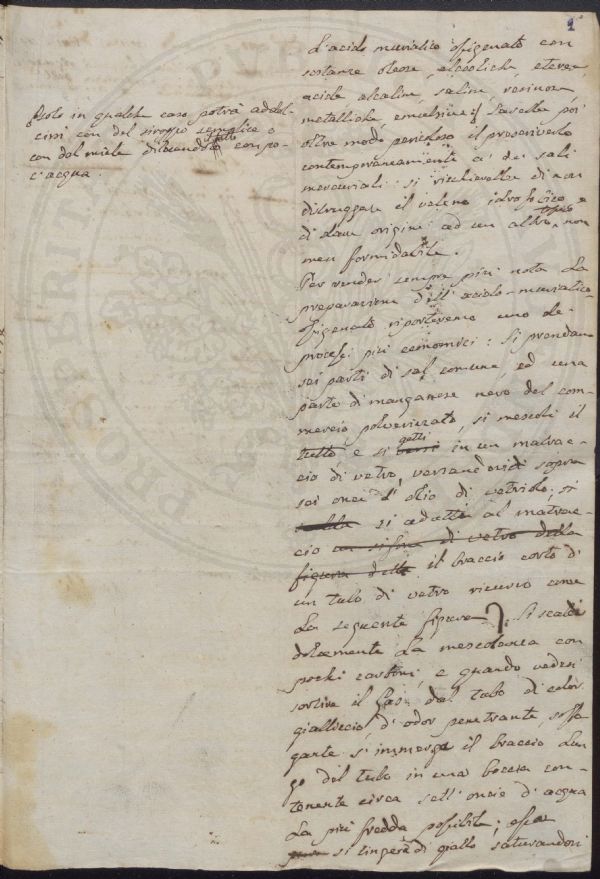 1
L'acido muriatico ossigenato con
sostanze oleose, alcooliche, eteree,
acide alcaline, saline, resinose
metalliche, emulsive. Sarebbe poi
oltre modo pericoloso il prescriverlo
contemporaneamente a' dei sali
mercuriali: si rischierebbe di non
distruggere il veleno idrofobico e
di dare origine ad un altro non
men formidabile.
Per render sempre più nota la
preparazione dell'acido-muriatico
ossigenato riporteremo uno de'
processi più economici: Si prendano
sei parti di sal comune, ed una
parte di manganese nero del com-
mercio polverizzato, si mescoli il
tutto, e si getti in un matrac-
cio di vetro, versandovici sopra
sei once d'olio di vetriolo; si
si adatti al matrac-
cio un sifone di vetro della
figura della il braccio corto di
un tubo di vetro ricurvo come
la seguente figura. Si scaldi
dolcemente la mescolanza con
pochi carboni, e quando vedesi
sortire il Gas dal tubo di color
gialliccio, d'odor penetrante, soffo-
gante si immerge il braccio lun-
go del tubo in una boccia con-
tenente circa sell'oncie d'acqua
la più fredda possibile; essa
si tingerà di giallo saturandosi
Solo in qualche caso potrà addol-
cirsi con del siroppo semplice o
con del miele dilacendolo con po-
c'acqua.